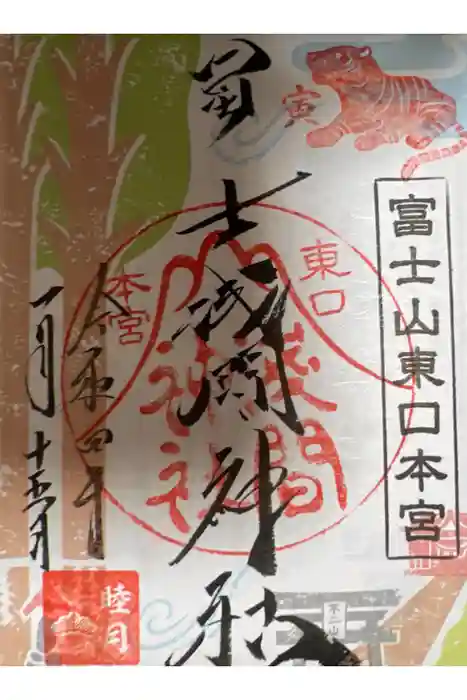 富士山東口本宮
寅
冨士浅間神社
東口
本宮
淺間
神社
令和四年
一月十五日
睦月
不二山